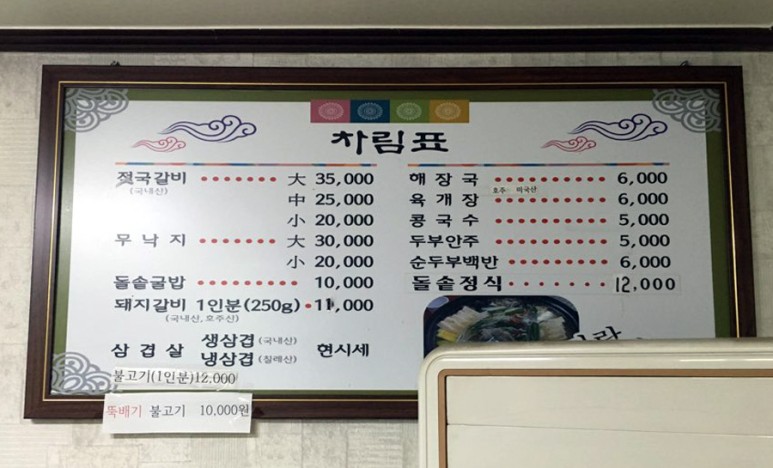 차림표
전국갈비 ······· 大 35,000
(국내산)
中 25,000
小 20,000
무낙지 ······· 大 30,000
小 20,000
돌솥굴밥 ········· 10,000
돼지갈비 1인분(250g) · 11,000
(국내산, 호주산)
삼겹살 생삼겹 (국내산) 현시세
냉삼겹 (칠레산)
불고기(1인분)12,000
뚝배기 불고기 10,000원
해장국 ········· 6,000
호주 미국산
육개장 ········· 6,000
콩국수 ········· 5,000
두부안주 ········· 5,000
순두부백반 ········· 6,000
돌솥정식 ······· 12,000